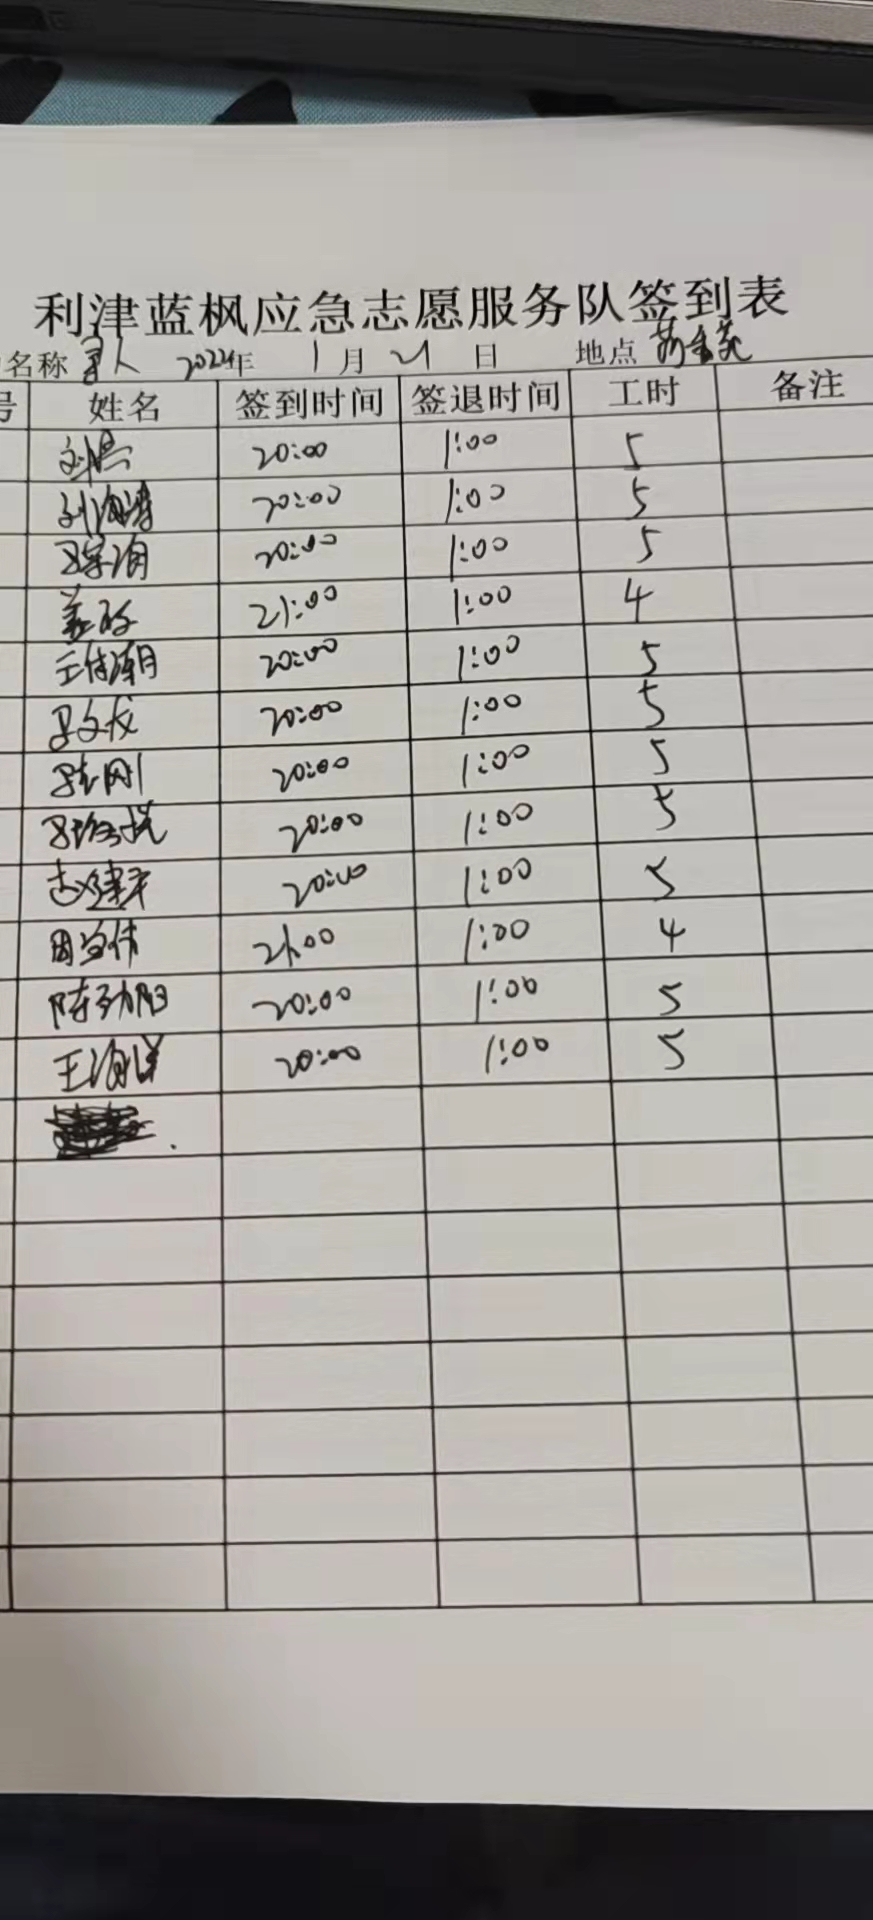 利津蓝枫应急志愿服务队签到表
名称 寻人 2024年 1月21日 地点
号 姓名 签到时间 签退时间 工时 备注
20:00 1:00 5
刘海涛 20:00 1:00 5
20:00 1:00 5
21:00 1:00 4
20:00 1:00 5
文龙 20:00 1:00 5
刚 20:00 1:00 5
20:00 1:00 5
赵建平 20:00 1:00 5
周 伟 21:00 1:00 4
陈 阳 20:00 1:00 5
王海洋 20:00 1:00 5